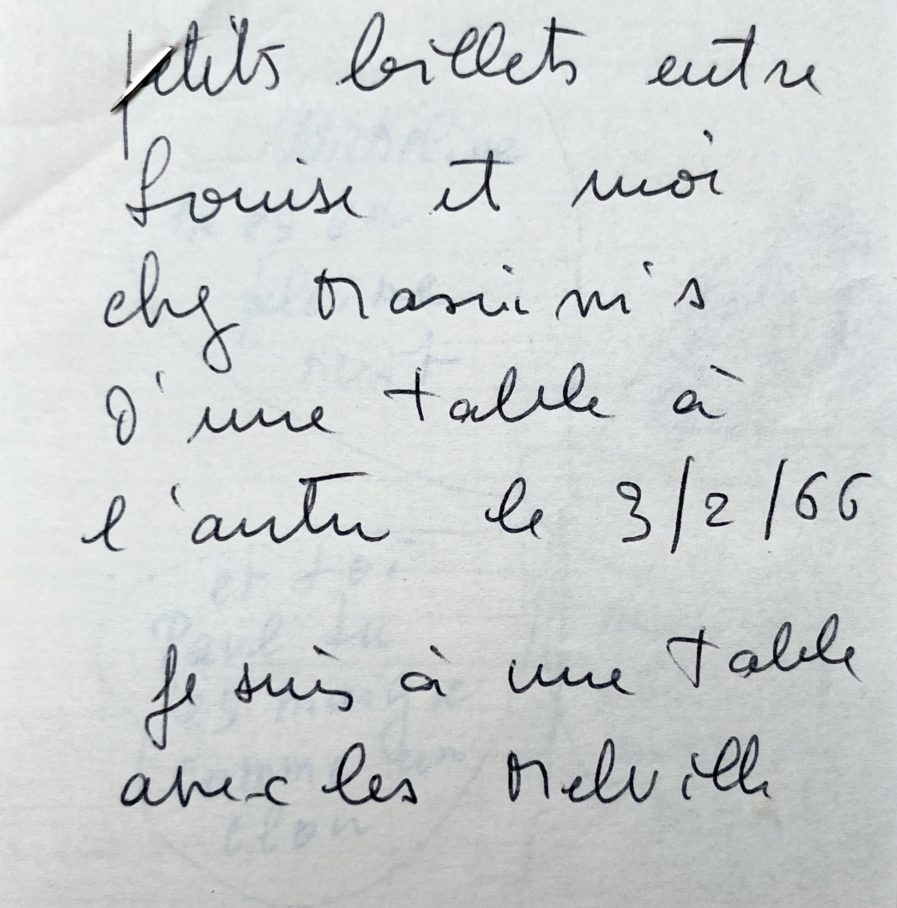 petits billets entre
Louise et moi
chez Masini ni's
d'une table à
l'autre le 3/2/66
Je suis à une table
avec les Melville